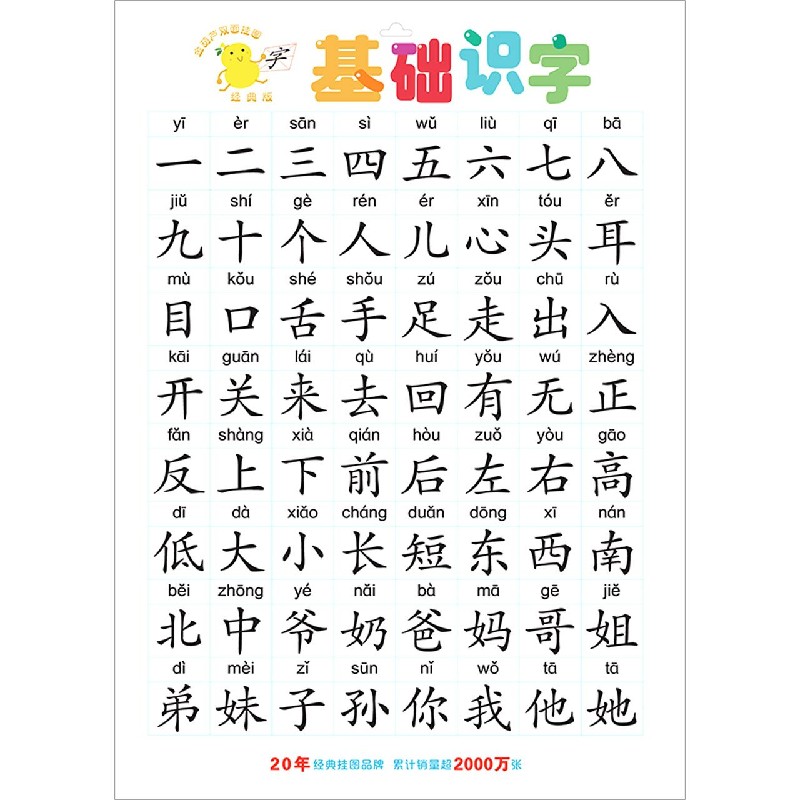 字
经典版
基础识字
yī èr sān sì wǔ liù qī bā
一 二 三 四 五 六 七 八
jiǔ shí gè rén ér xīn tóu ěr
九 十 个 人 儿 心 头 耳
mù kǒu shé shǒu zú zǒu chū rù
目 口 舌 手 足 走 出 入
kāi guān lái qù huí yǒu wú zhèng
开 关 来 去 回 有 无 正
fǎn shàng xià qián hòu zuǒ yòu gāo
反 上 下 前 后 左 右 高
dī dà xiǎo cháng duǎn dōng xī nán
低 大 小 长 短 东 西 南
běi zhōng yé nǎi bà mā gē jiě
北 中 爷 奶 爸 妈 哥 姐
dì mèi zǐ sūn nǐ wǒ tā tā
弟 妹 子 孙 你 我 他 她
20年 经典挂图品牌 累计销量超2000万张